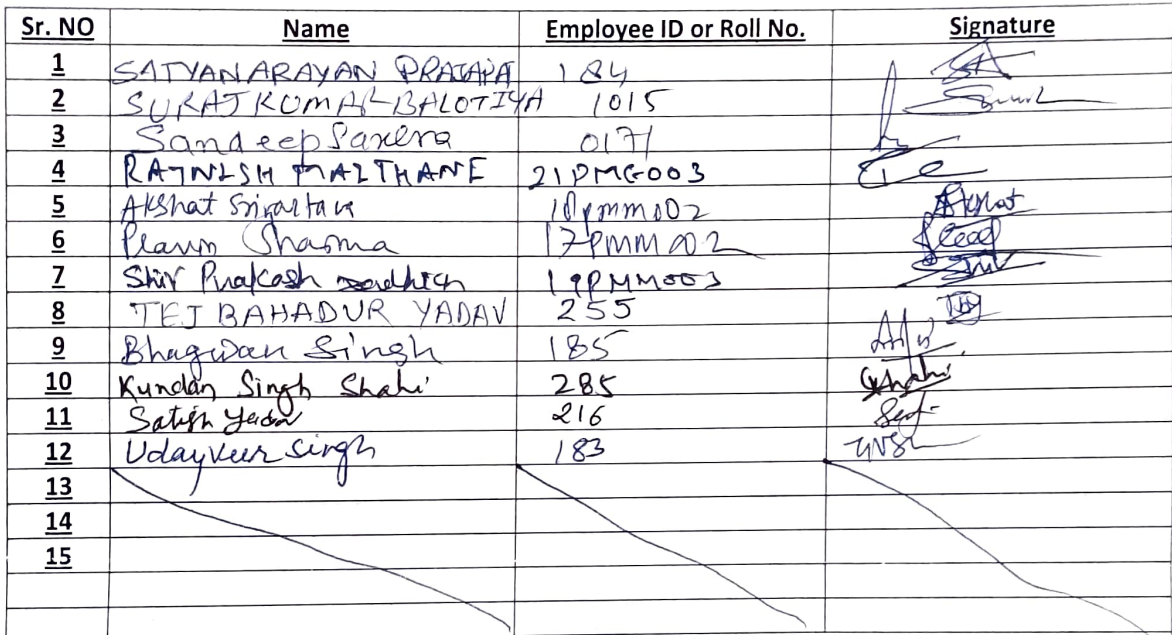 Sr. NO Name Employee ID or Roll No. Signature
1 SATYANARAYAN PRAJAPA 184
2 SURAJ KUMAR BALOTIYA 1015
3 Sandeep Saxena 0171
4 RAJNISH MAITHANE 21PMG003
5 Akshat Srivastava 18pmm002 Akshat
6 Sharma 17PMM002
7 Shiv Prakash 19PMM003
8 TEJ BAHADUR YADAV 255
9 Bhagwan Singh 185
10 Kundan Singh Shahi 285 Shahi
11 Satish Yadav 216
12 Udayveer Singh 183
13
14
15